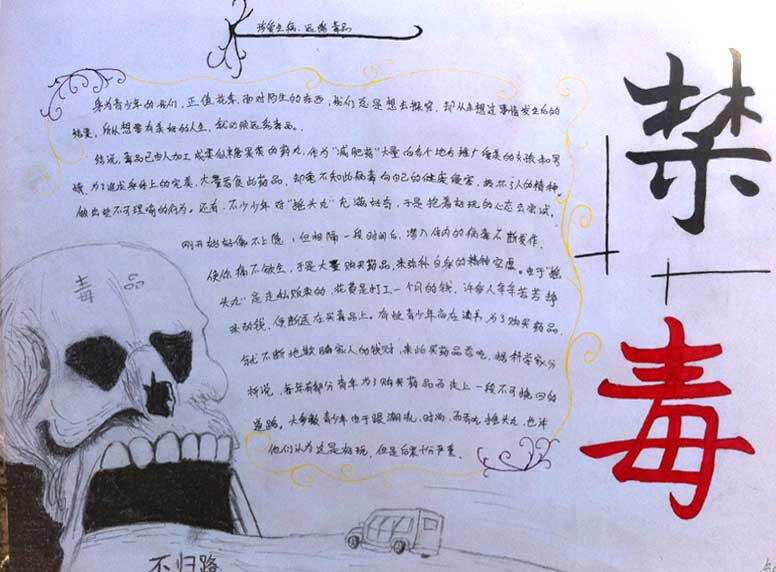 珍爱生命、远离毒品
身为青少年的我们，正值花季，面对陌生的东西，我们总是想去探究，却从未想过事情发生后的
结果，所以想要有美好的人生，就必须远离毒品。
据说，毒品已由人加工成类似来糖果类的药丸，作为"减肥药"大量向各个地方推广
为了追求身体上的完美，大量吞食此药品，却毫不知此病毒向自己的健康侵害，损坏了人的精神，
做出些不可理喻的行为。还有，不少少年对"摇头丸"充满好奇，于是抱着好玩的心态去尝试。
刚开始好像不上瘾，但相隔一段时间后，潜入体内的病毒不断发作，
使你痛不欲生，于是大量购买药品，来弥补自身的精神空虚。由于"摇
头丸"是走私贩来的，花费是打工一个月的钱，许多人辛辛苦苦挣
来的钱，便断送在买毒品上。有些青少年尚在读书，为了购买药品，
就不断地欺骗家人的钱财，来购买药品吞吃，据科学家分
析说，每年有部分青年为了购买药品而走上一段不可挽回的
道路，大多数青少年由于跟潮流，时尚，而去吃摇头丸，也许
他们认为这是好玩，但是后果十分严重。
禁
毒
毒品
不归路